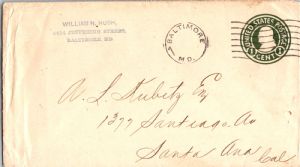 WILLIAM H. RUSH,
STREET,
BALTIMORE MD
BALTIMORE
MD.
UNITED STATES
CENT
A. L. Kubitz Esq
1377 Santiago Av
Santa Ana Cal